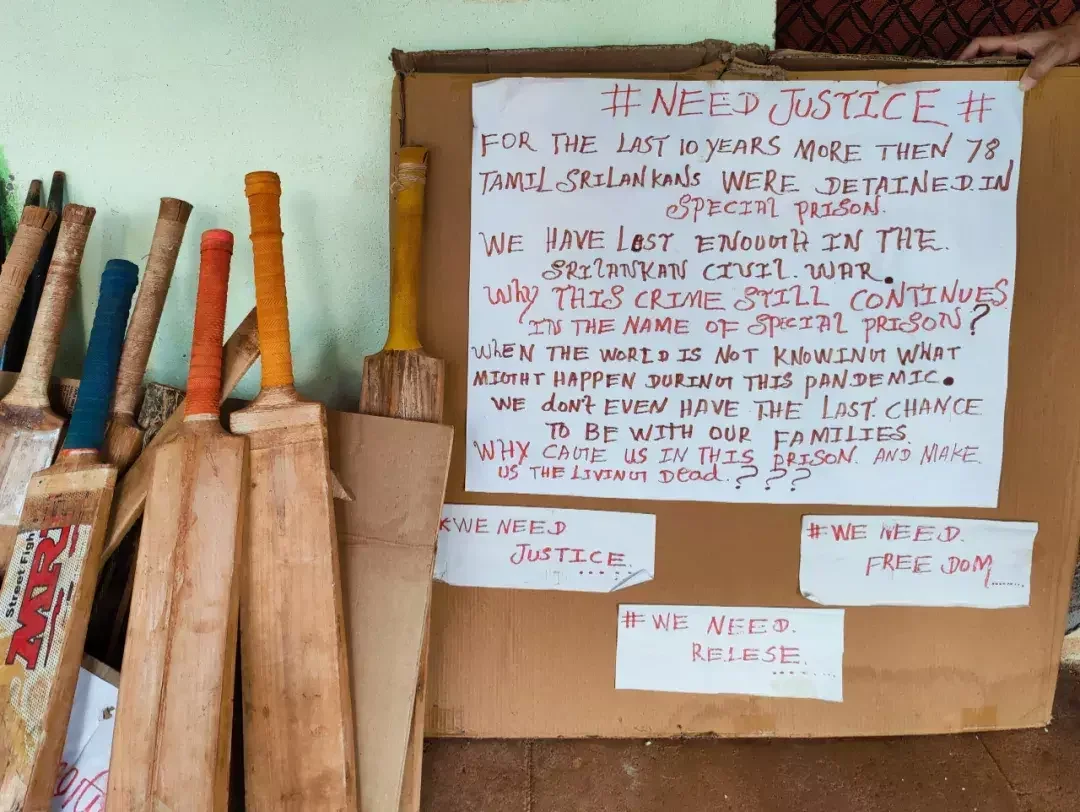 # NEED JUSTICE #
FOR THE LAST 10 YEARS MORE THEN 78
TAMIL SRILANKANS WERE DETAINED.IN
SPECIAL PRISON.
WE HAVE LOST ENOUGH IN THE.
SRILANKAN CIVIL.WAR.
WHY THIS CRIME STILL CONTINUES
IN THE NAME OF SPECIAL PRISON?
WHEN THE WORLD IS NOT KNOWING WHAT
MIGHT HAPPEN DURING THIS PANDEMIC.
WE dON'T EVEN HAVE THE LAST.CHANCE
TO BE WITH OUR FAMILIES.
WHY CAGE US IN THIS PRISON. AND MAKE.
US THE LIVING Dead.???
WE NEED
JUSTICE.....
#WE NEED.
FREEDOM......
#WE NEED.
RELESE.......
Street Figh
MRI